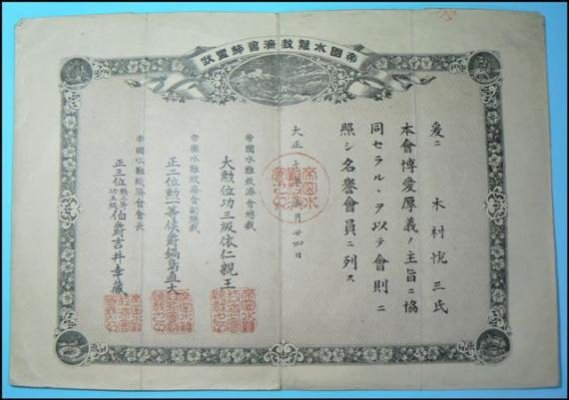 爰ニ 木村悦三氏
本會博愛厚義ノ主旨ニ協
同セラルヽヲ以テ會則ニ
照シ名譽會員ニ列ス
大正
月廿四日
帝國水難救濟會總裁
大勲位功三級依仁親王
帝國水難救濟會副總裁
正二位勲一等侯爵鍋島直大
帝國水難救濟會會長
正三位勲三等功五級伯爵吉井幸藏